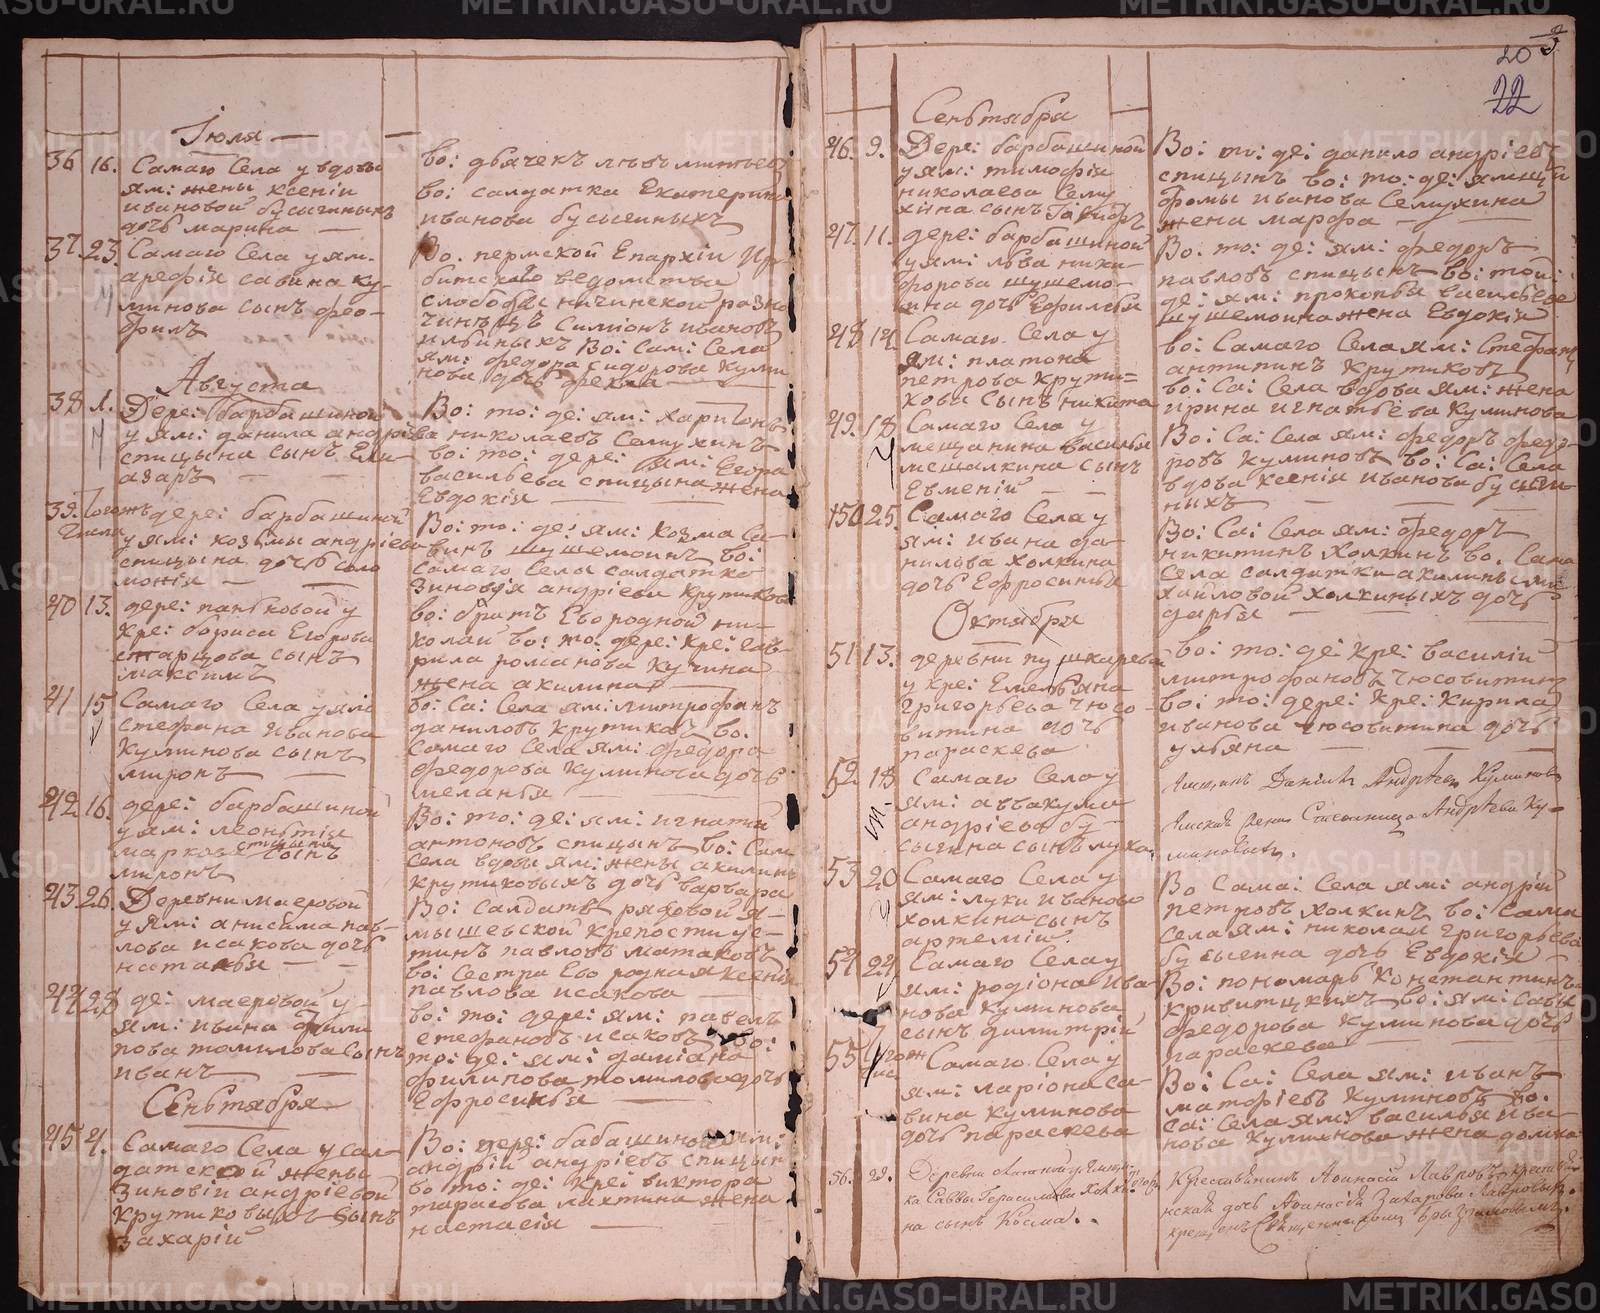 Іюля
36 16. Самаго Села у вдовы
ям: жены ксеніи
ивановой бусыгиныхъ
дочь марина
во: дьячекъ
во: салдатка Екатерина
иванова бусыгиныхъ
37. 23. Самаго Села у ям.
арефія савина ку-
минова сынъ фео-
филъ
Во. пермской Епархіи Ир-
битскаго ведомства
слободы ничинской разно
чинецъ Симіонъ ивановъ
ильиныхъ Во: Сам: Села
ям: федора Сидорова куми
нова дочь фекла
Августа
38 1. Дере: барбашиной
у ям: данила андріева
спицына сынъ Ели-
азаръ
Во: то: де: ям: харитонъ
николаевъ Семухинъ
во: то: дере: ям: Егора
васильева спицына жена
Евдокія
39. тогожъ дере: барбашиной
числа у ям: козмы андріева
спицына дочь соло
монія
Во: то: де: ям: козма Са-
винъ шушемоинъ во:
самаго Села салдатка
Зиновія андріева крутикова
40 13. дере: паньковой у
кре: бориса Егорова
старцова сынъ
максимъ
во: братъ Ево родной ни-
колай во: то: дере: кре: гав-
рила романова кучина
жена акилина
41 15 Самаго Села у ям:
стефана иванова
куминова сынъ
миронъ
во: са: Села ям: митрофанъ
даниловъ крутиковъ во.
Самаго Села ям: федора
федорова куминова дочь
меланья
42. 16. дере: барбашиной
у ям: леонтія
маркова спицына сынъ
миронъ
Во: то: де: ям: игнатій
антоновъ спицынъ во: Сам:
села вдовы ям: жены акилины
крутиковыхъ дочь варвара
43 26. Деревни маеровой
у ям: анисима пав-
лова исакова дочь
наталья
Во: салдатъ рядовой я-
мышевской крепости ус-
тинъ павловъ матаковъ
во: сестра Ево родная ксенія
павлова исакова
44 28 де: маеровой у
ям: ивана фили
пова томилова сынъ
иванъ
во: то: дере: ям: павелъ
стефановъ исаковъ во:
то: де: ям: даміана
филипова томилова дочь
Ефросинья
Сеньтября
45 4. Самаго Села у сал-
датской жены
Зиновіи андріевой
крутиковыхъ сынъ
захарій
Во: дере: бабашиной ям:
андрій андріевъ спицын
во то: де: кре: виктора
тарасова лахтина жена
настасія
20
22
Сеньтября
46. 9. Дере: барбашиной
у ям: тимофія
николаева Сему
хина сынъ Гавриилъ
Во: то: де: данило андріевъ
спицынъ во: то: де: ямщи
фомы иванова Семухина
жена марфа
47. 11. дере: барбашиной
у ям: льва ники-
форова шушемо-
ина дочь Ефимья
Во: то: де: ям: федоръ
павловъ спицынъ во: той:
де: ям: прокопья васильева
шушемоина жена Евдокія
48 14. Самаго Села у
ям: платона
петрова крути=
кова сынъ никита
во: Самаго Села ям: Стефанъ
антипинъ крутиковъ
во: са: Села вдова ям: жена
ирина игнатьева куминова
49. 18 Самаго Села у
мещанина василья
мешалкина сынъ
Евменій
Во: Са: Села ям: федоръ федо-
ровъ куминовъ во: Са: Села
вдова ксенія иванова бусыги-
ныхъ
150 25. Самаго Села у
ям: ивана да-
нилова холкина
дочь Ефросинья
Во: Са: Села ям: федоръ
никитинъ холкинъ во. Сама
Села салдатки акилины ми-
хайловой холкиныхъ дочь
дарья
Октября
51 13. деревни пушкарева
у кре: Емельяна
григорьева чюсо-
витина дочь
параскева
во: то: де: кре: василій
митрофановъ чюсовитинъ
во: то: дере: кре: Кирила
иванова чюсовитина дочь
ульяна
52. 18 Самаго Села у
ям: аввакума
андріева бу-
сыгина сынъ лука
Ямщикъ Данилъ Андрѣевъ Куминовъ
Ямская жена Степанида Андрѣева Ку-
миновыхъ.
53 20 Самаго Села у
ям: луки иванова
холкина сынъ
артемій.
Во Сама: Села ям: андрій
петровъ холкинъ во: сама
Села ям: николая григорьева
бусыгина дочь Евдокія
54 24 Самаго Села у
ям: родіона ива
нова куминова
сынъ димитрій
Во: пономарь константинъ
кривитцкихъ во: ям: савы
федорова куминова дочь
параскева
55 тогож чис Самаго Села у
ям: ларіона са-
вина куминова
дочь параскева
Во: Са: Села ям: иванъ
матфіевъ куминовъ во.
са: Села ям: василья ива-
нова куминова жена домна
56. 29. Деревни
ка Саввы Герасимова
на сынъ Косма.
Крестьянинъ Афанасій Лавровъ крестья-
нская дочь Афанасія Захарова Лавровыхъ.
крещенъ Священникомъ